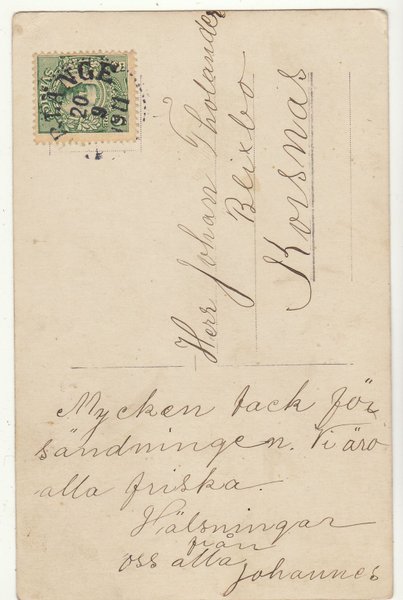 STÅNGE
20
9
1911
Herr Johan Tholander
Blixbo
Korsnäs
Mycken tack för
sändningen. Vi äro
alla friska.
Hälsningar
från
oss alla
Johannes